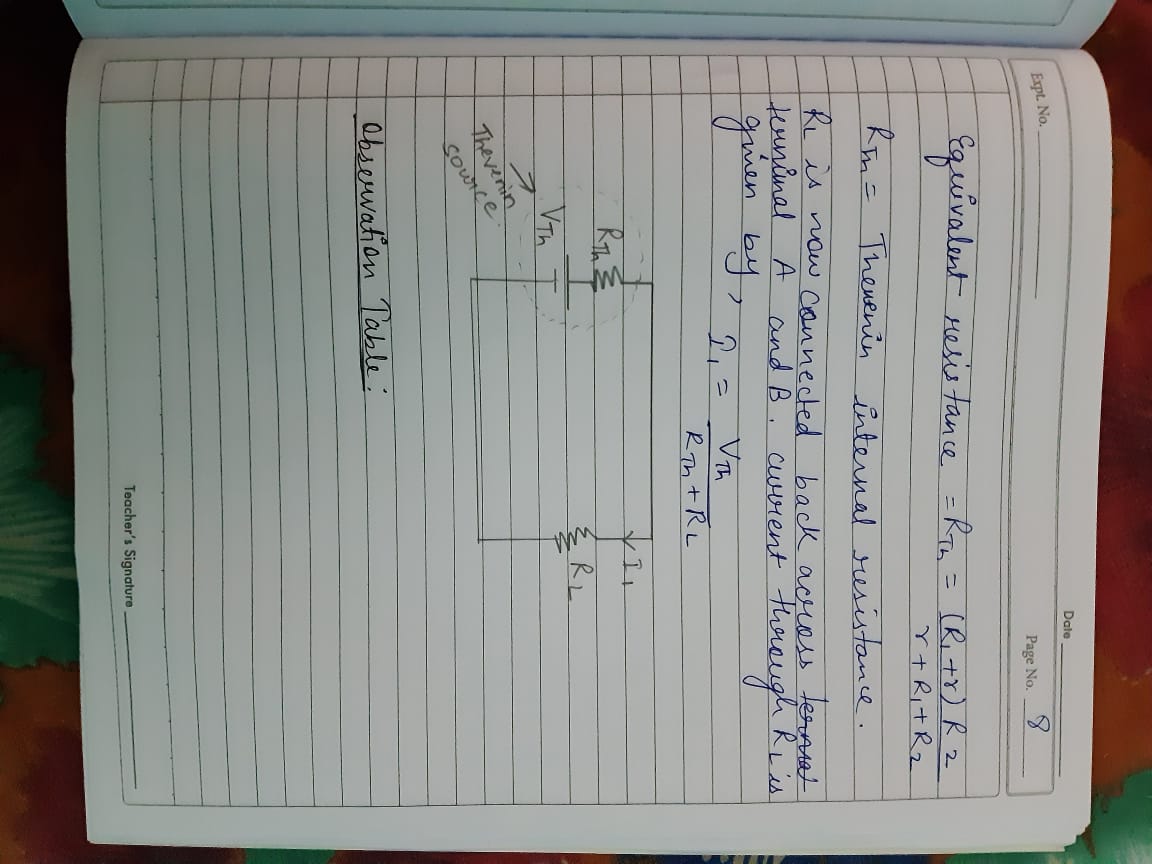 Date
Expt. No.
Page No. 8
Equivalent resistance = RTh = (R1+r) R2
r + R1 + R2
RTh = Thevenin internal resistance.
RL is now connected back across
terminal A and B. current through RL is
given by,
I1 = VTh
RTh + RL
I1
RTh
RL
VTh
Thevenin
source.
Observation Table:
Teacher's Signature